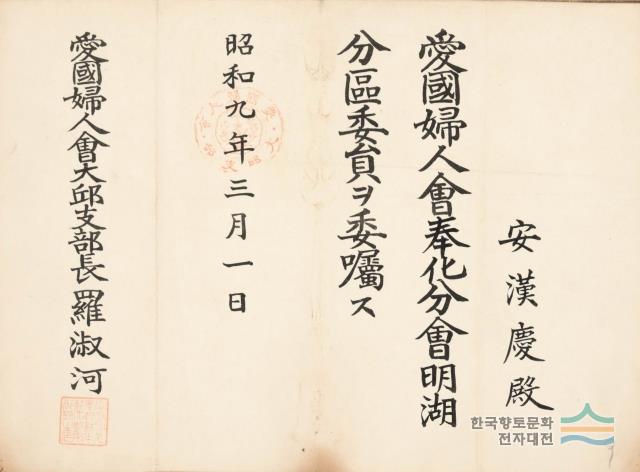 安漢慶殿
愛國婦人會奉化分會明湖
分區委員ヲ委囑ス
昭和九年三月一日
愛國婦人會大邱支部長羅淑河
한국향토문화
전자대전